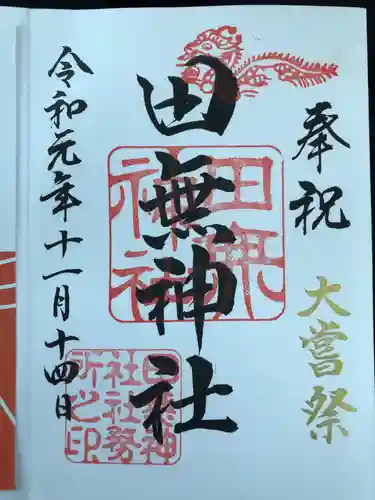 奉祝
大嘗祭
田無神社
令和元年十一月十四日
田無神社
田無神社社務所之印